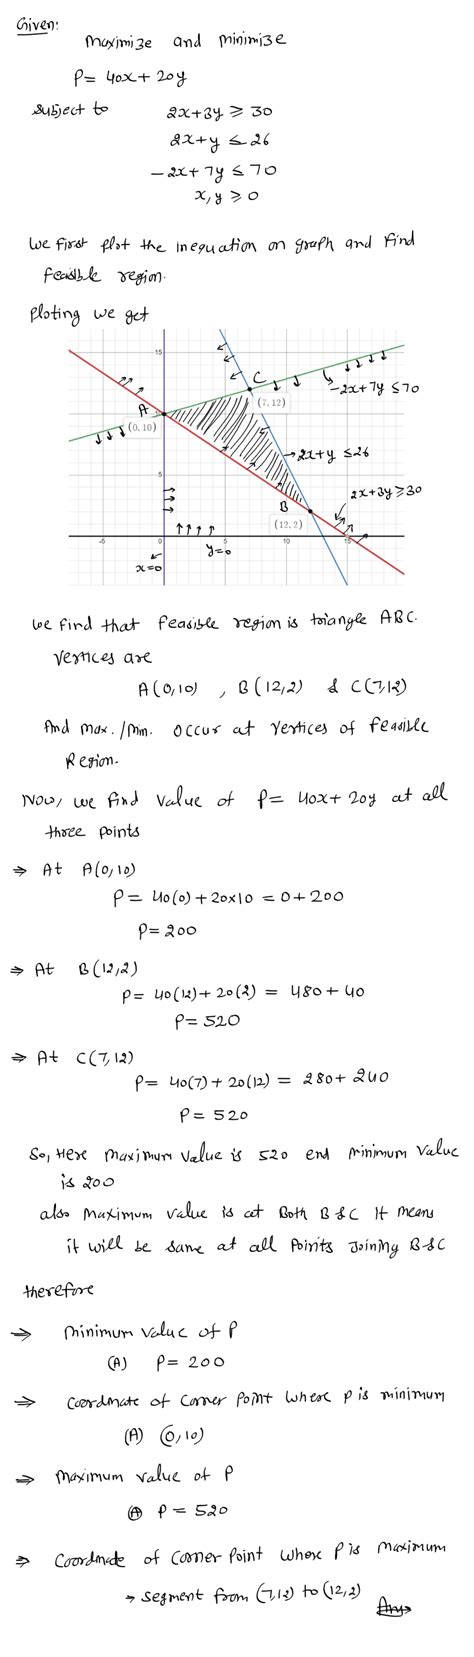 Given:
Maximize and minimize
P= 40x+20y
subject to 2x+3y ≥ 30
2x+y ≤ 26
-2x+7y ≤ 70
x,y ≥ 0
We first plot the inequation on graph and find
feasible region.
Ploting we get
15
C
A
(0,10)
(7,12)
-2x+7y ≤ 70
5
2x+y ≤ 26
2x+3y ≥ 30
B
(12,2)
-5 0 5 10 15
x=0
y=0
We find that feasible region is triangle ABC.
Vertices are
A(0,10) , B(12,2) & C(7,12)
And max./min. occur at vertices of feasible
Region.
Now, we find value of P= 40x+20y at all
three points
⇒ At A(0,10)
P= 40(0)+20×10 = 0+200
P=200
⇒ At B(12,2)
P= 40(12)+20(2) = 480+40
P=520
⇒ At C(7,12)
P= 40(7)+20(12) = 280+240
P=520
So, Here maximum value is 520 end minimum value
is 200
also maximum value is at Both B&C It means
it will be same at all points Joining B&C
therefore
⇒ minimum value of P
(A) P= 200
⇒ coordinate of corner point where P is minimum
(A) (0,10)
⇒ maximum value of P
(A) P= 520
⇒ coordinate of corner point where P is maximum
→ segment from (7,12) to (12,2) Ans